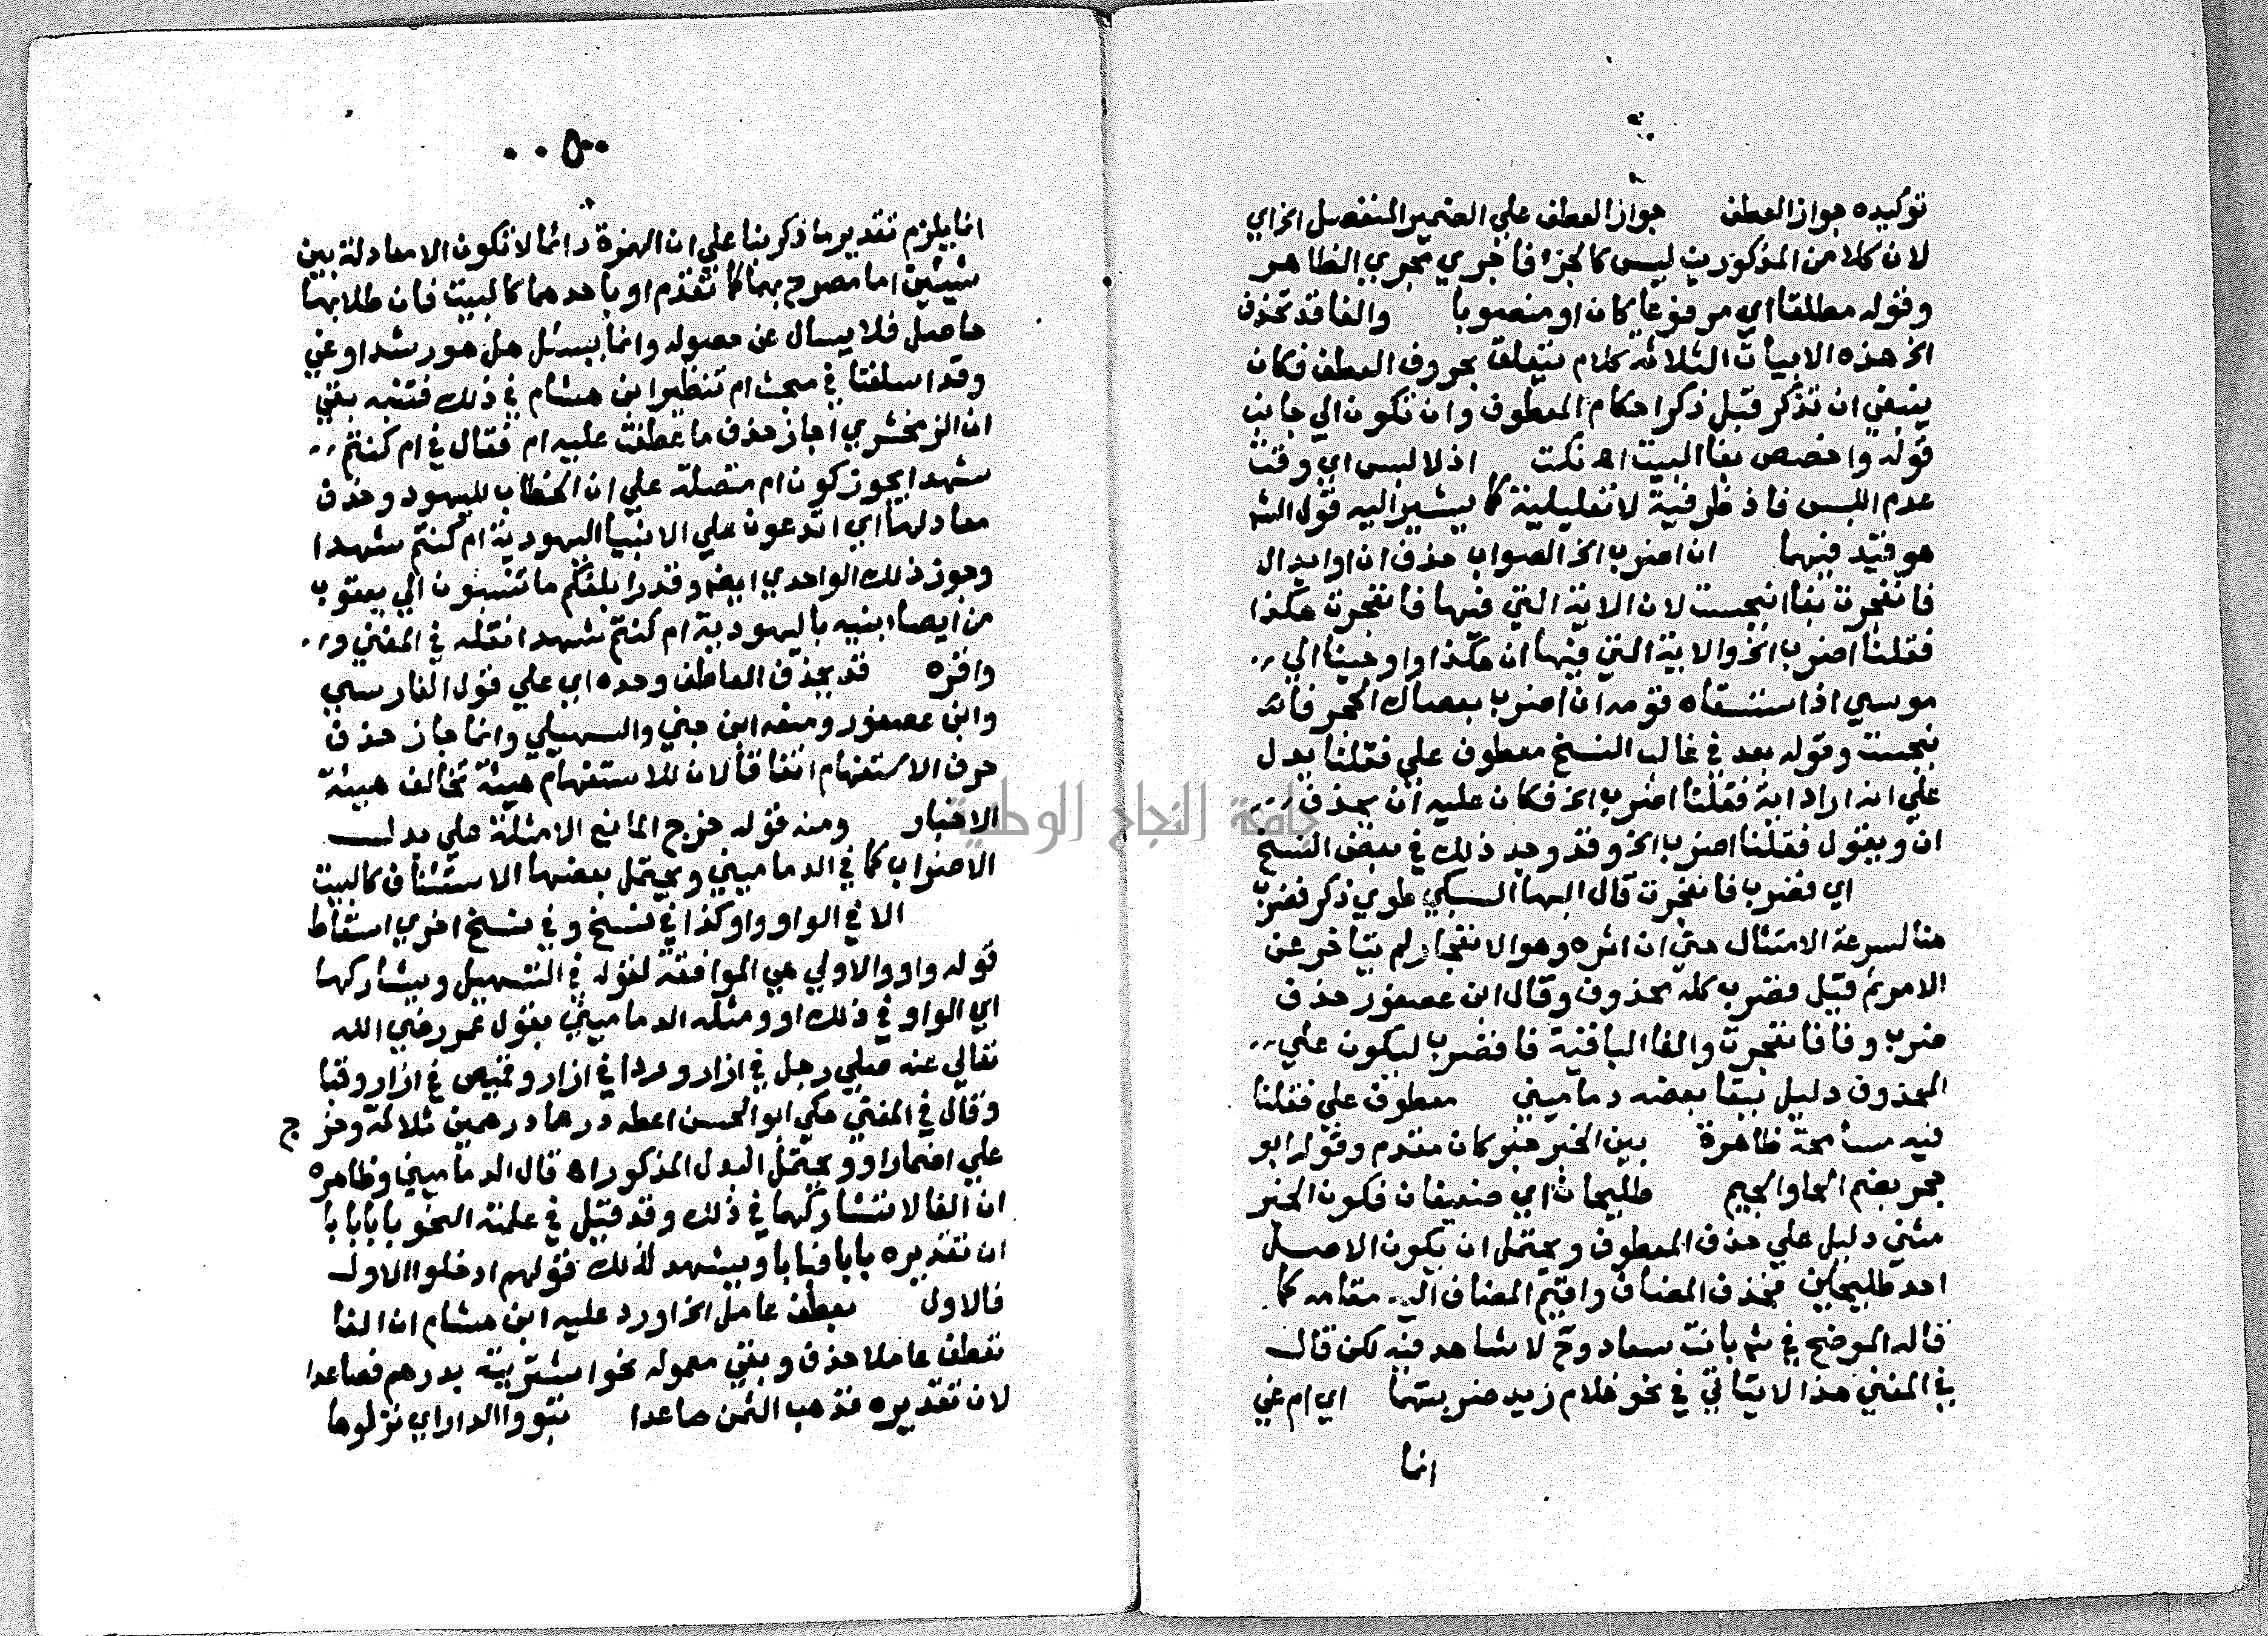 توكيده جواز العطف جواز العطف علي الضمير المنفصل الخ اي
لان كلا من المذكورين ليس كالجزء فاجري مجري الظاهر
وقوله مطلقا اي مرفوعا كان او منصوبا والفا قد تحذف
الخ هذه الابيات الثلاثة كلام يتعلق بحروف العطف فكان
ينبغي ان تذكر قبل ذكر احكام المعطوف وان تكون الي جانب
قوله واخصص بفا البيت اه نكت اذ لا لبس اي وقت
عدم اللبس فاذ ظرفية لا تعليلية كما يشير اليه قول الش
هو قيد فيهما ان اضرب الخ الصواب حذف ان او ابدال
فانفجرت بفا انبجست لان الاية التي فيها فانفجرت هكذا
فقلنا اضرب الخ والاية التي فيها ان هكذا واوحينا الي
موسي اذ استسقاه قومه ان اضرب بعصاك الحجر فان
بجست وقوله بعد في غالب النسخ معطوف علي فقلنا يدل
علي انه اراد اية فقلنا اضرب الخ فكان عليه ان يحذف
ان ويقول فقلنا اضرب الخ وقد وجد ذلك في بعض النسخ
اي فضرب فانفجرت قال البها السبكي طوي ذكر فضرب
هنا لسرعة الامتثال حتي ان اثره وهو الانفجار لم يتاخر عن
الامر ثم قيل فضرب كله محذوف وقال ابن عصفور حذف
ضرب وفا فانفجرت والفا الباقية فا فضرب ليكون علي
المحذوف دليل ببقا بعضه دماميني معطوف علي فقلنا
فيه مسامحة ظاهرة بين الخير خبر كان مقدم وقوله ابو
حجر بضم الحا والجيم طليحان اي ضعيفان فكون الخبر
مثني دليل علي حذف المعطوف ويحتمل ان يكون الاصل
احد طليحين فحذف المضاف واقيم المضاف اليه مقامه كما
قاله الموضح في شم بانت سعاد وح لا شاهد فيه لكن قال
في المغني هذا لا يتاتي في نحو غلام زيد ضربتهما اي ام غي
انما
٥٠
انما يلزم تقدير ما ذكر بنا علي ان الهمزة دائما لا تكون الا معادلة بين
شيئين اما مصرح بهما كما تقدم او باحدهما كالبيت فان طلابها
حاصل فلا يسال عن حصوله وانما يسئل هل هو رشد او غي
وقد اسلفنا في مبحث ام تنظير ابن هشام في ذلك فتنبه بقي
ان الزمخشري اجاز حذف ما عطفت عليه ام فقال في ام كنتم
شهدا يجوز كون ام متصلة علي ان الخطاب لليهود وحذف
معادلها اي اتدعون علي الانبيا اليهودية ام كنتم شهدا
وجوز ذلك الواحدي ايضا وقدر ابلغكم ما تنسبون الي يعقوب
من ايصاء بنيه باليهودية ام كنتم شهدا نقله في المغني
واقره قد يحذف العاطف وحده اي علي قول الفارسي
وابن عصفور ومنعه ابن جني والسهيلي وانما جاز حذف
حرف الاستفهام اتفاقا لان للاستفهام هيئة تخالف هيئة
الاخبار ومنه قوله خرج المانع الامثلة علي بدل
الاضراب كما في الدماميني ويحتمل بعضها الاستئناف كالبيت
الا في الواو واو كذا في نسخ وفي نسخ اخري اسقاط
قوله واو والاولي هي الموافقة لقوله في التسهيل ويشاركها
اي الواو في ذلك او ومثله الدماميني بقول عمر رضي الله
تعالي عنه صلي رجل في ازار وردا في ازار وقميص في ازار وقبا
وقال في المغني حكي ابو الحسن اعطه درهما درهمين ثلاثة وخرج
علي اضمار او ويحتمل البدل المذكور اه قال الدماميني وظاهره
ان الفا لا تشاركهما في ذلك وقد قيل في علمته النحو بابا بابا
ان تقديره بابا فبابا ويشهد لذلك قولهم ادخلوا الاول
فالاول بعطف عامل الخ اورد عليه ابن هشام ان الفا
تعطف عاملا حذف وبقي معموله نحو اشتريته بدرهم فصاعدا
لان تقديره فذهب الثمن صاعدا تبووا الدار اي نزلوها
جامعة النجاح الوطنية